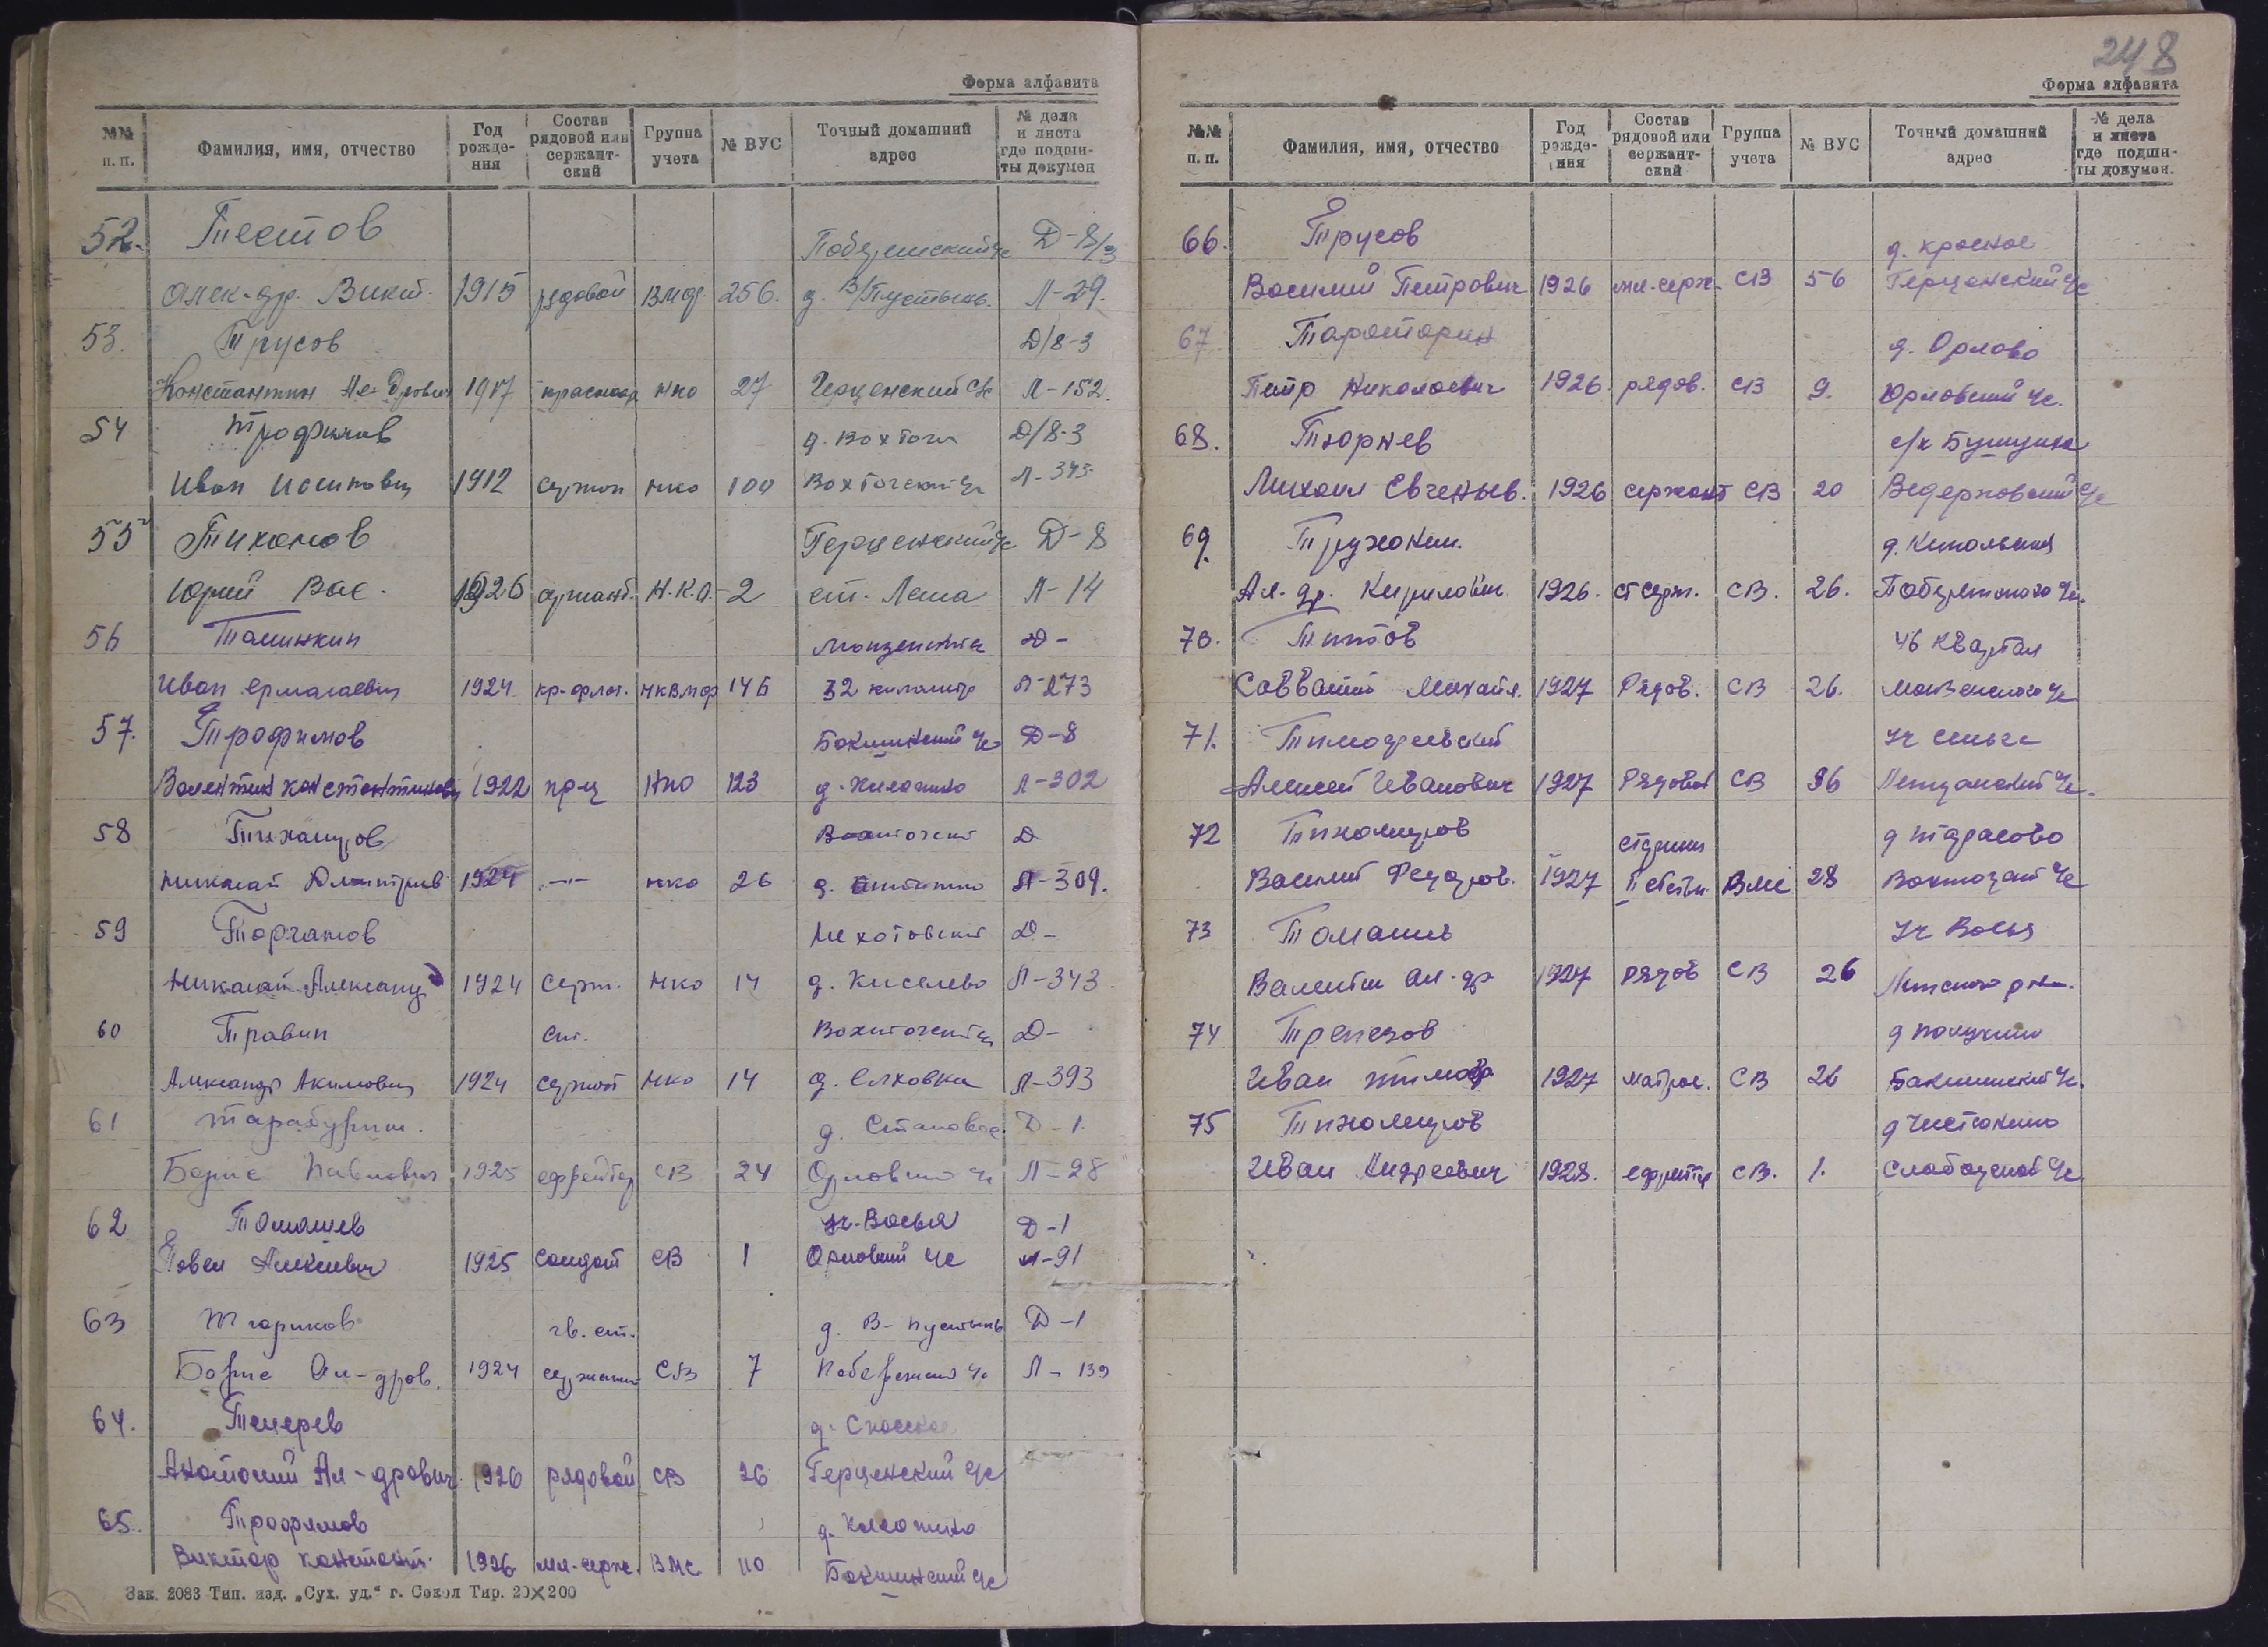 Форма алфавита
№№ п. п. Фамилия, имя, отчество Год рождения Состав рядовой или сержантский Группа учета № ВУС Точный домашний адрес № дела и листа где подшиты докумен
52. Тестов Побережский с/с Д-8/3
Алек-др. Викт. 1915 рядовой ВМФ 256. д. В/Пустынь. Л-29.
53. Трусов Д/8-3
Константин Ал-дрович 1917 красноар НКО 27 Герценский с/с Л-152.
54 Трофимов д. Вохтога Д/8-3
Иван Осипович 1912 сержан НКО 100 Вохтогский с/с Л-343
55 Тихонов Герценский с/с Д-8
Юрий Вас. 1926 сержант. Н.К.О. 2 ст. Лежа Л-14
56 Д-
Иван Ермолаевич 1924 кр-флот. НКВМФ 14Б 32 километр Л-273
57. Трофимов Бакшинский с/с Д-8
Валентин Константинович 1922 НКО 123 Л-302
58 Тихомиров Д
Николай Дмитриев 1924 -"- НКО 26 д. Л-309.
59 Торгатов Д-
Николай Александ 1924 серж. НКО 14 д. Киселево Л-343
60 Травин ст. Вохтогский с/с Д-
Александр Акимович 1924 сержант НКО 14 д. Елховка Л-393
61 Тарабурин. д. Становое Д-1
Борис Павлович 1925 ефрейтор СВ 24 Орловский с/с Л-28
62 Томашев уч-Восья Д-1
Павел Алексеевич 1925 солдат СВ 1 Орловский с/с Л-91
63 гв. ст. д. В-Пустынь Д-1
Борис Ал-дров. 1924 сержант СВ 7 Побережский с/с Л-139
64. Тетерев д. Спасское
Анатолий Ал-дрович 1926 рядовой СВ 26 Герценский с/с
65. Трофимов д.
Виктор Констант. 1926 мл-серж. ВМС 110 Бакшинский с/с
Зак. 2083 Тип. изд. „Сух. уд.“ г. Сокол Тир. 20×200
248
Форма алфавита
№№ п. п. Фамилия, имя, отчество Год рождения Состав рядовой или сержантский Группа учета № ВУС Точный домашний адрес № дела и листа где подшиты докумен.
66. Трусов д. Красное
Василий Петрович 1926 мл-серж. СВ 56 Герценский с/с
67 Тараторин д. Орлово
Петр Николаевич 1926 рядов. СВ 9. Юрловский с/с.
68. Тюрнев с/х Бушуиха
Михаил Евгеньев. 1926 сержант СВ 20 Ведерковский с/с
69. Тружкин.
Ал-др. Кирилович 1926. ст серж. СВ. 26. Побережского с/с.
70. Титов 46 квартал
Савватий Михайл. 1927 Рядов. СВ 26. Монзенского с/с
71. Тимофеевский уч
Алексей Иванович 1927 Рядовой СВ 96 с/с.
72 Тихомиров старшин д Тарасово
Василий Федоров. 1927 II статьи ВМС 28 Вохтогский с/с
73 Томашев уч Восья
Валентин Ал-др 1927 рядов СВ 26
74 Трепезов
Иван Тимоф 1927 матрос. СВ 26 Бакшинский с/с.
75 Тихомиров д Чистокино
Иван Андреевич 1928. ефрейтор СВ. 1. Слободской с/с.